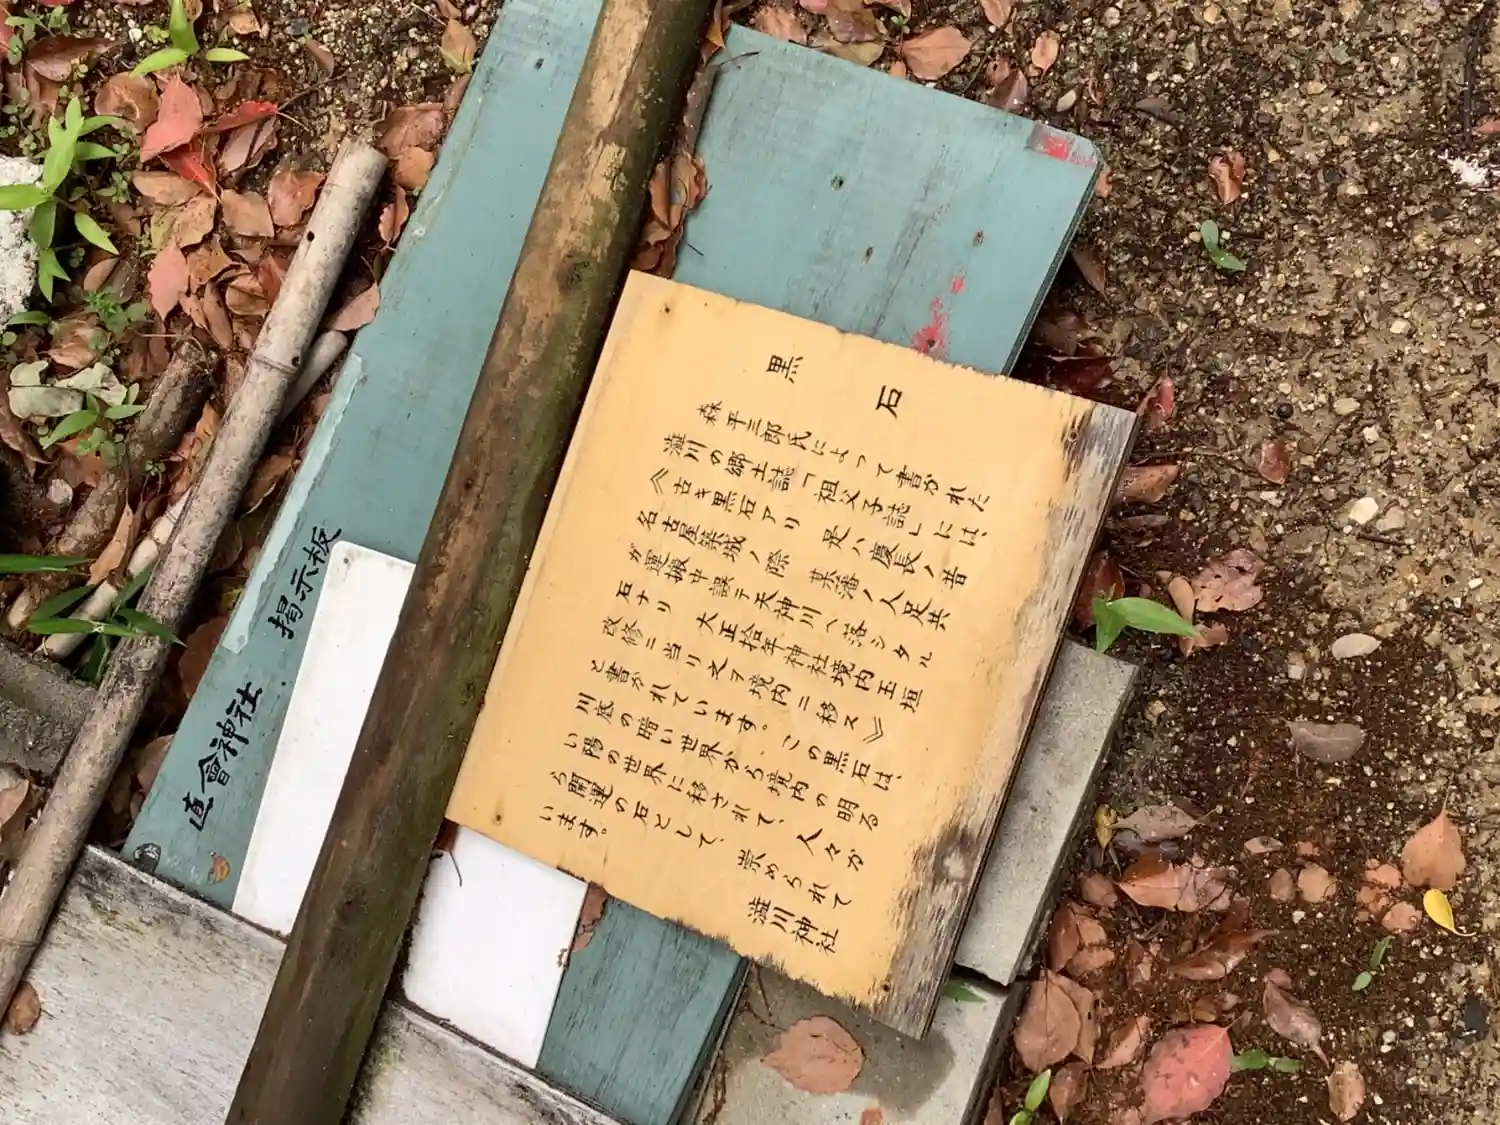 黒石
森平三郎氏によって書かれた
澁川の郷土誌「祖父子誌」には、
《古キ黒石アリ 是ハ慶長ノ昔
名古屋築城ノ際 某藩ノ人足共
ガ運搬中誤テ天神川ヘ落シタル
石ナリ 大正拾年神社境内玉垣
改修ニ当リ之ヲ境内ニ移ス》
と書かれています。この黒石は、
川底の暗い世界から境内の明る
い陽の世界に移されて、人々か
ら開運の石として、崇められて
います。
澁川神社
直會神社 掲示板